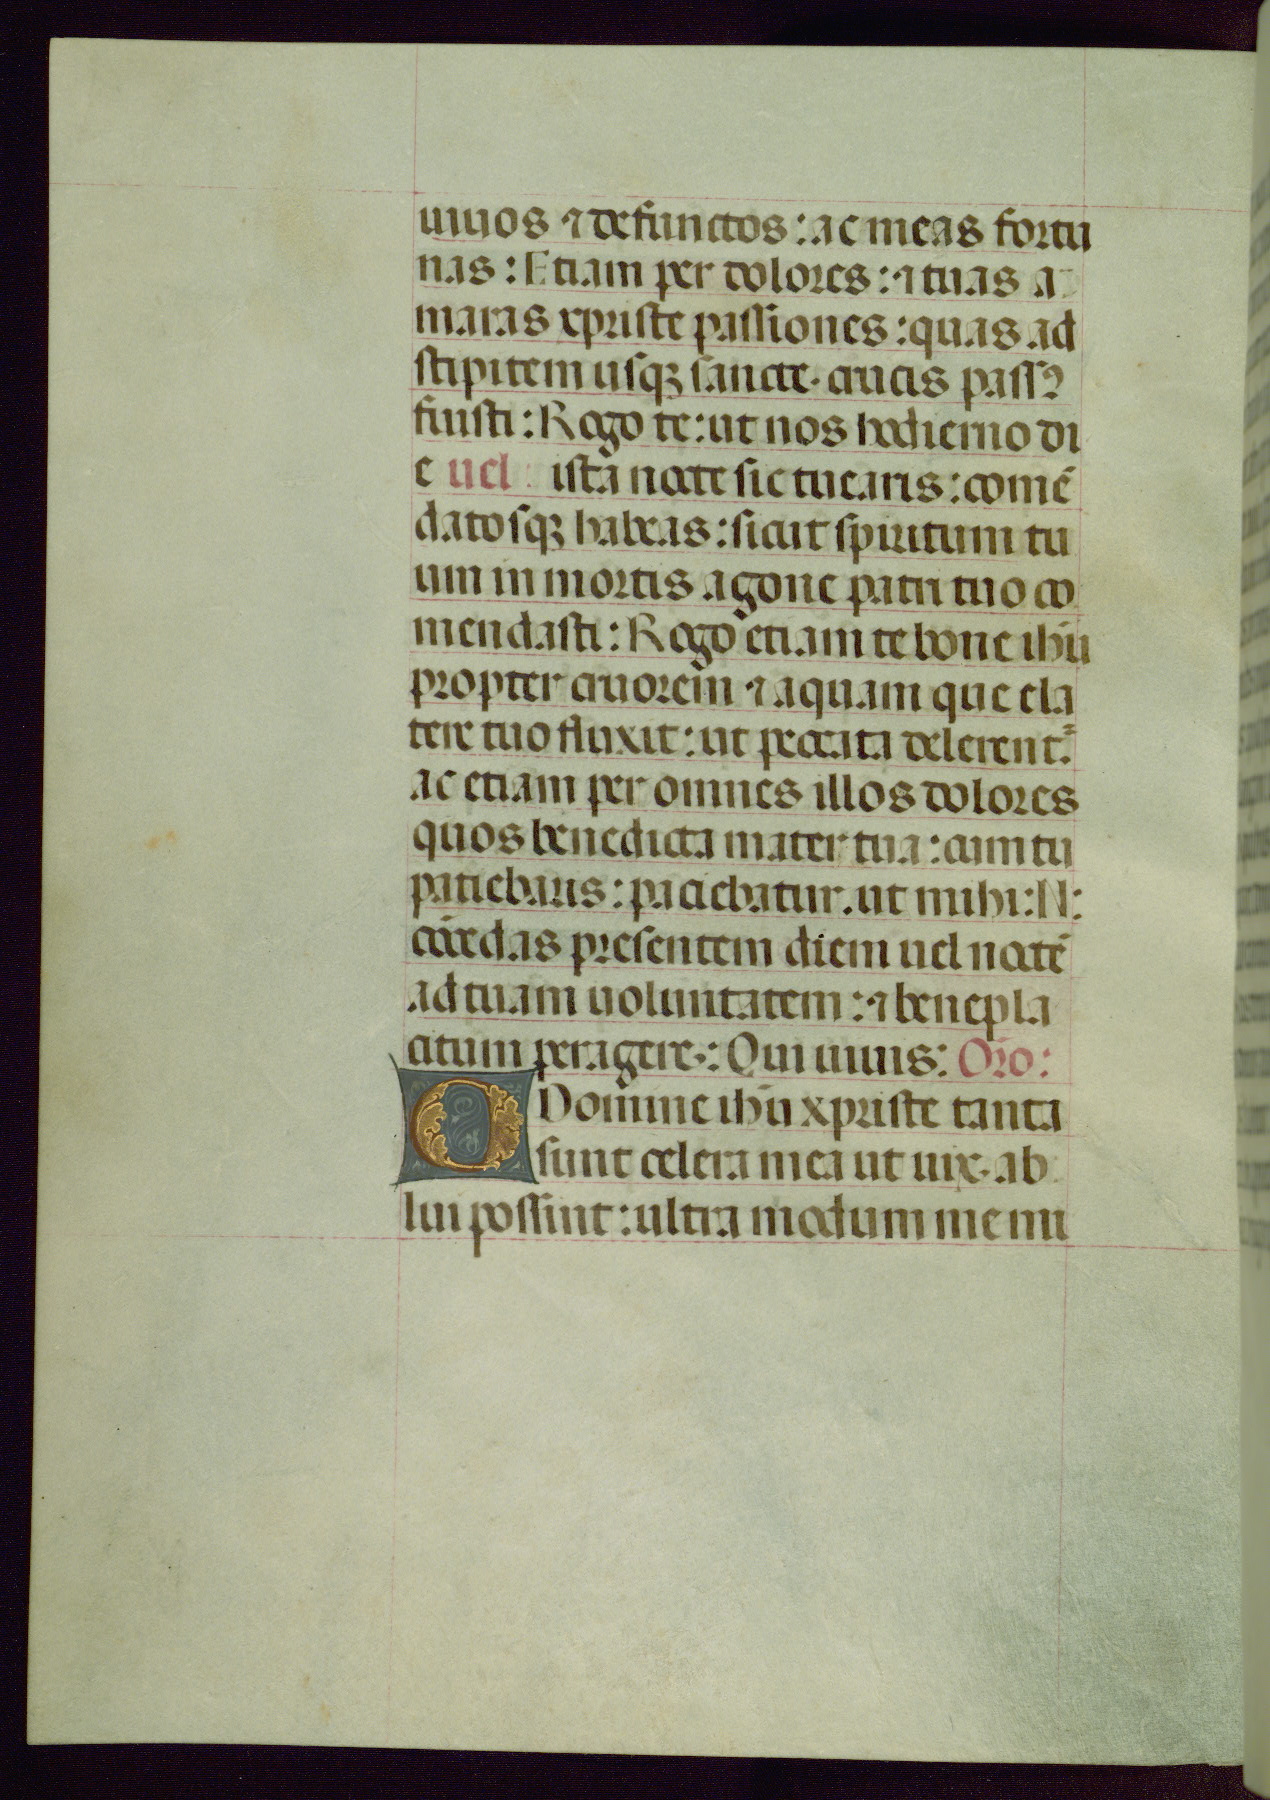 uiuos ⁊ defunctos: ac meas fortu
nas: Etiam per dolores: ⁊ tuas a
maras xpriste passiones: quas ad
stipitem usqꝫ sancte crucis passꝰ
fuisti: Rogo te: ut nos hodierno di
e uel istã nocte sic tuearis: comẽ
datosqꝫ habeas: sicut spiritum tu
um in mortis agone patri tuo co
mendasti: Rogo etiam te bone ihũ
propter cruorem ⁊ aquam que ela
tere tuo fluxit: ut peccata delerent᷑:
ac etiam per omnes illos dolores
quos benedicta mater tua: cum tu
patiebaris: paciebatur. ut mihi: N:
cõcedas presentem diem uel noctẽ
ad tuam uoluntatem: ⁊ benepla
citum peragere: Qui uiuis: Oro:
O Domine ihũ xpriste tanta
sunt celera mea ut uix ab
lui possint: ultra modum me mi